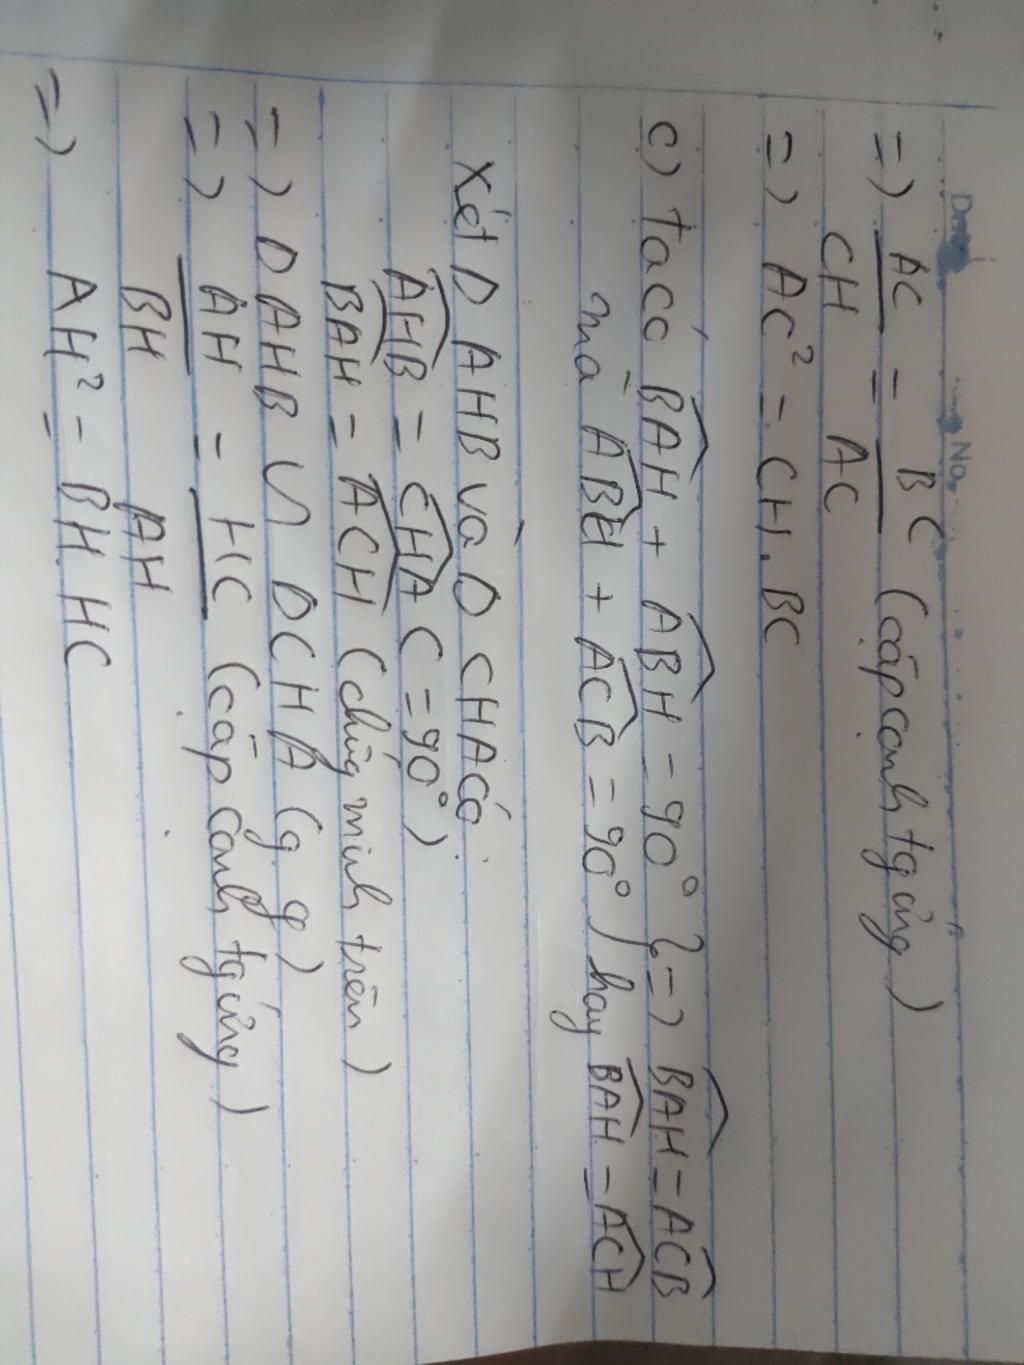 Date No.
=) AC = BC (cặp cạnh tg ứng)
CH AC
=) AC² = CH.BC
c) ta có BAH + ABH = 90° } =) BAH = ACB
mà ABH + ACB = 90° } hay BAH = ACH
Xét D AHB và D CHA có
AHB = CHA C = 90°)
BAH = ACH (chứng minh trên)
=) D AHB ∽ D CHA (g g)
=) AH = HC (cặp cạnh tg ứng)
BH AH
=) AH² = BH.HC